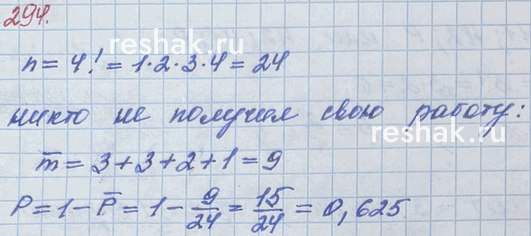 294.
reshak.ru
n = 4! = 1·2·3·4 = 24
никто не получил свою работу:
reshak.ru
m̅ = 3 + 3 + 2 + 1 = 9
P = 1 − P̅ = 1 − 9/24 = 15/24 = 0,625